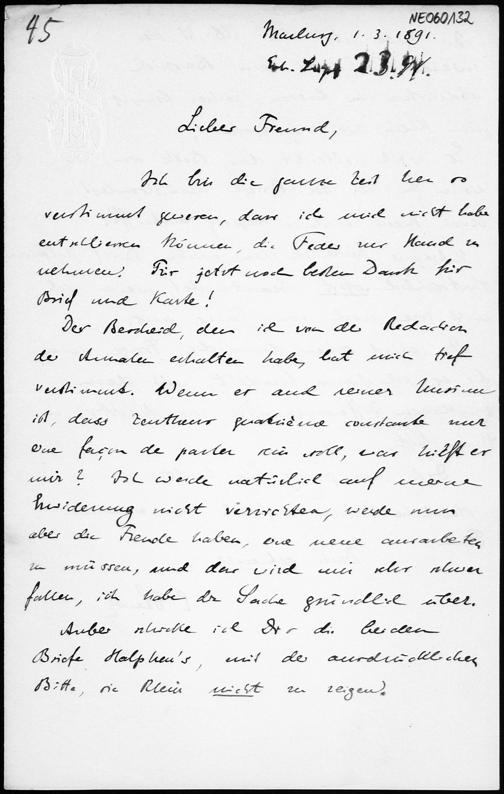 45
NE060132
Marburg, 1.3.1891.
23.91.
Lieber Freund,
Ich bin die ganze Zeit her so
verstimmt gewesen, dass ich mich nicht habe
entschliessen können, die Feder zur Hand zu
nehmen. Für jetzt noch besten Dank für
Brief und Karte!
Der Bescheid, den ich von der Redaction
der Annalen erhalten habe, hat mich tief
verstimmt. Wenn es auch reiner Unsinn
ist, dass Zeuthens quatrième constante nur
une façon de parler sein soll, was hilft es
mir? Ich werde natürlich auf meine
Erwiderung nicht verzichten, werde nun
aber die Freude haben, eine neue ausarbeiten
zu müssen, und das wird mir sehr schwer
fallen, ich habe die Sache gründlich über.
Anbei schicke ich Dir die beiden
Briefe Halphen's, mit der ausdrücklichen
Bitte, sie Klein nicht zu zeigen.